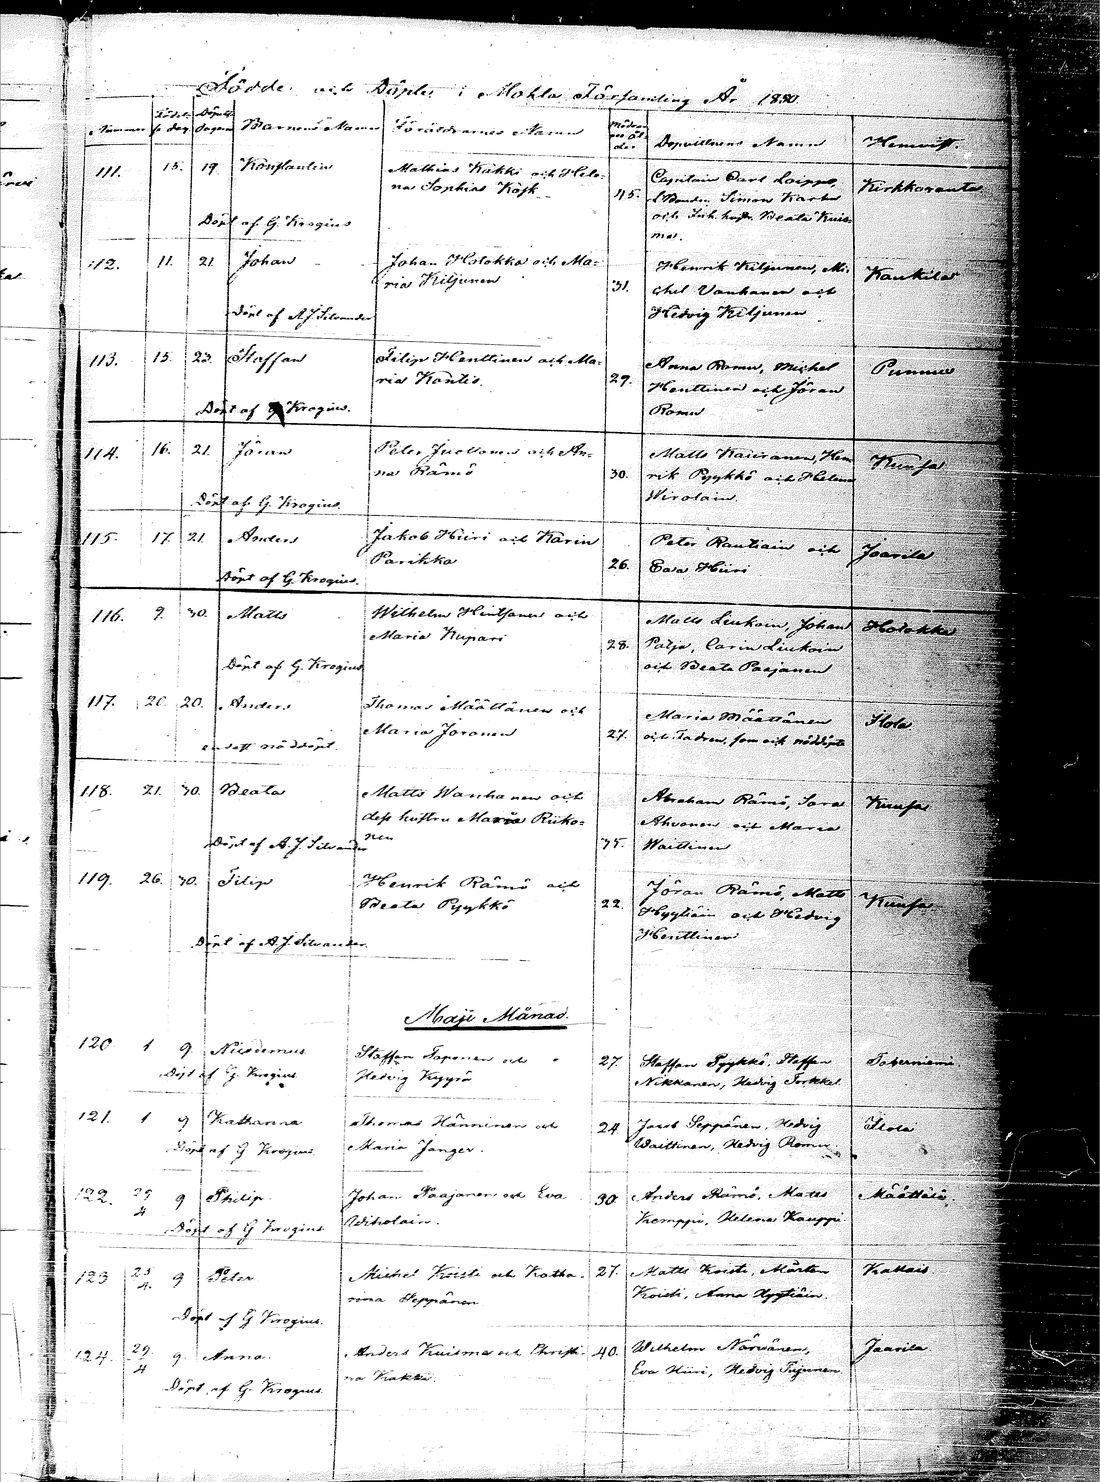 Födde och Döpte i Mohla Församling År 1850.
Nummer Födelse dag Döpelse dagen Barnens Namn Föräldrarnes Namn Modrens ålder Dopvittnens Namn Hemvist.
111. 15. 19. Konstantin Mathias Kakki och Hele- Capitain Carl Loippo,
na Sophia Käsk 45. Simon Karhu Kirkkoranta
Döpt af G. Krogius och Beata Kuis-
ma.
112. 11. 21. Johan Johan Holokka och Ma- Henrik Kiljunen, Mi- Kaukila
ria Kiljunen 31. chel Vanhanen och
Döpt af A J Silvander Hedvig Kiljunen
113. 15. 23. Staffan Filip Henttinen och Ma- Anna Romu, Michel Punnus
ria Kontio. 29. Henttinen och Jöran
Döpt af G Krogius. Romu
114. 16. 21. Jöran Peter Juvonen och An- Matts Kauranen, Hen- Kuusa
na Rämö 30. rik Pyykkö och Helena
Döpt af G. Krogius. Wirolain.
115. 17. 21. Anders Jakob Hiiri och Karin Peter Rautiain och Jaarila
Parikka 26. Eva Hiiri
Döpt af G. Krogius.
116. 9. 30. Matts Wilhelm Hintsanen och Matts Liukoin, Johan Holokka
Maria Kupari 28. Patja, Carin Liukoin
Döpt af G. Krogius och Beata Paajanen
117. 20. 20. Anders Thomas Määttänen och Maria Määttänen Ilola
Maria Joronen 27. och Fadren, som och nöddöpte
endast nöddöpt.
118. 21. 30. Beata Matts Wanhanen och Abraham Rämö, Sara Kuusa
dess hustru Maria Riiko- Ahvonen och Maria
Döpt af A. J. Silvander nen 35. Waittinen
119. 26. 30. Filip Henrik Rämö och Jöran Rämö, Matts Kuusa
Beata Pyykkö 22. Hyytiäin och Hedvig
Döpt af A. J. Silvander. Henttinen
Maji Månad.
120 1 9. Nicodemus Staffan Taponen och 27. Staffan Pyykkö, Staffan
Döpt af G. Krogius Hedvig Kyyrö Nikkanen, Hedvig Torkkel.
121. 1 9 Katharina Thomas Hänninen och 24. Jacob Seppänen, Hedvig Ilola
Döpt af G Krogius. Maria Janger. Waittinen, Hedvig Romu.
122. 29/4 9 Philip. Johan Paajanen och Eva 30 Anders Rämö, Matts Määttälä.
Döpt af G Krogius Wirolain. Kemppi, Helena Kauppi
123 25/4 9 Peter Michel Koisti och Katha- 27. Matts Koisti, Mårten
rina Seppänen Koisti, Anna Hyytiäin.
Döpt af G Krogius.
124. 29/4 9. Anna. Anders Kuisma och Christi- 40. Wilhelm Närvänen, Jaarila
na Kakki Eva Hiiri, Hedvig Tujunen.
Döpt af G. Krogius.